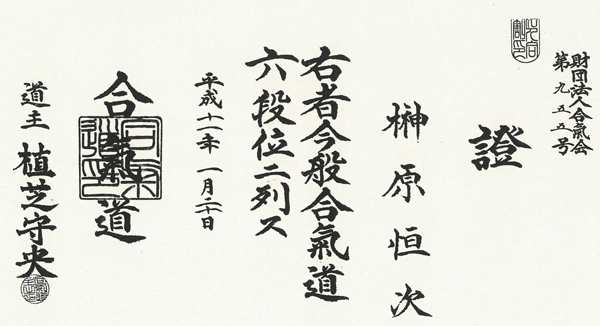 財団法人合氣会
第九五五号
證
榊原恒次
右者今般合氣道
六段位ニ列ス
平成十一年一月二十日
合氣道
道主 植芝守央